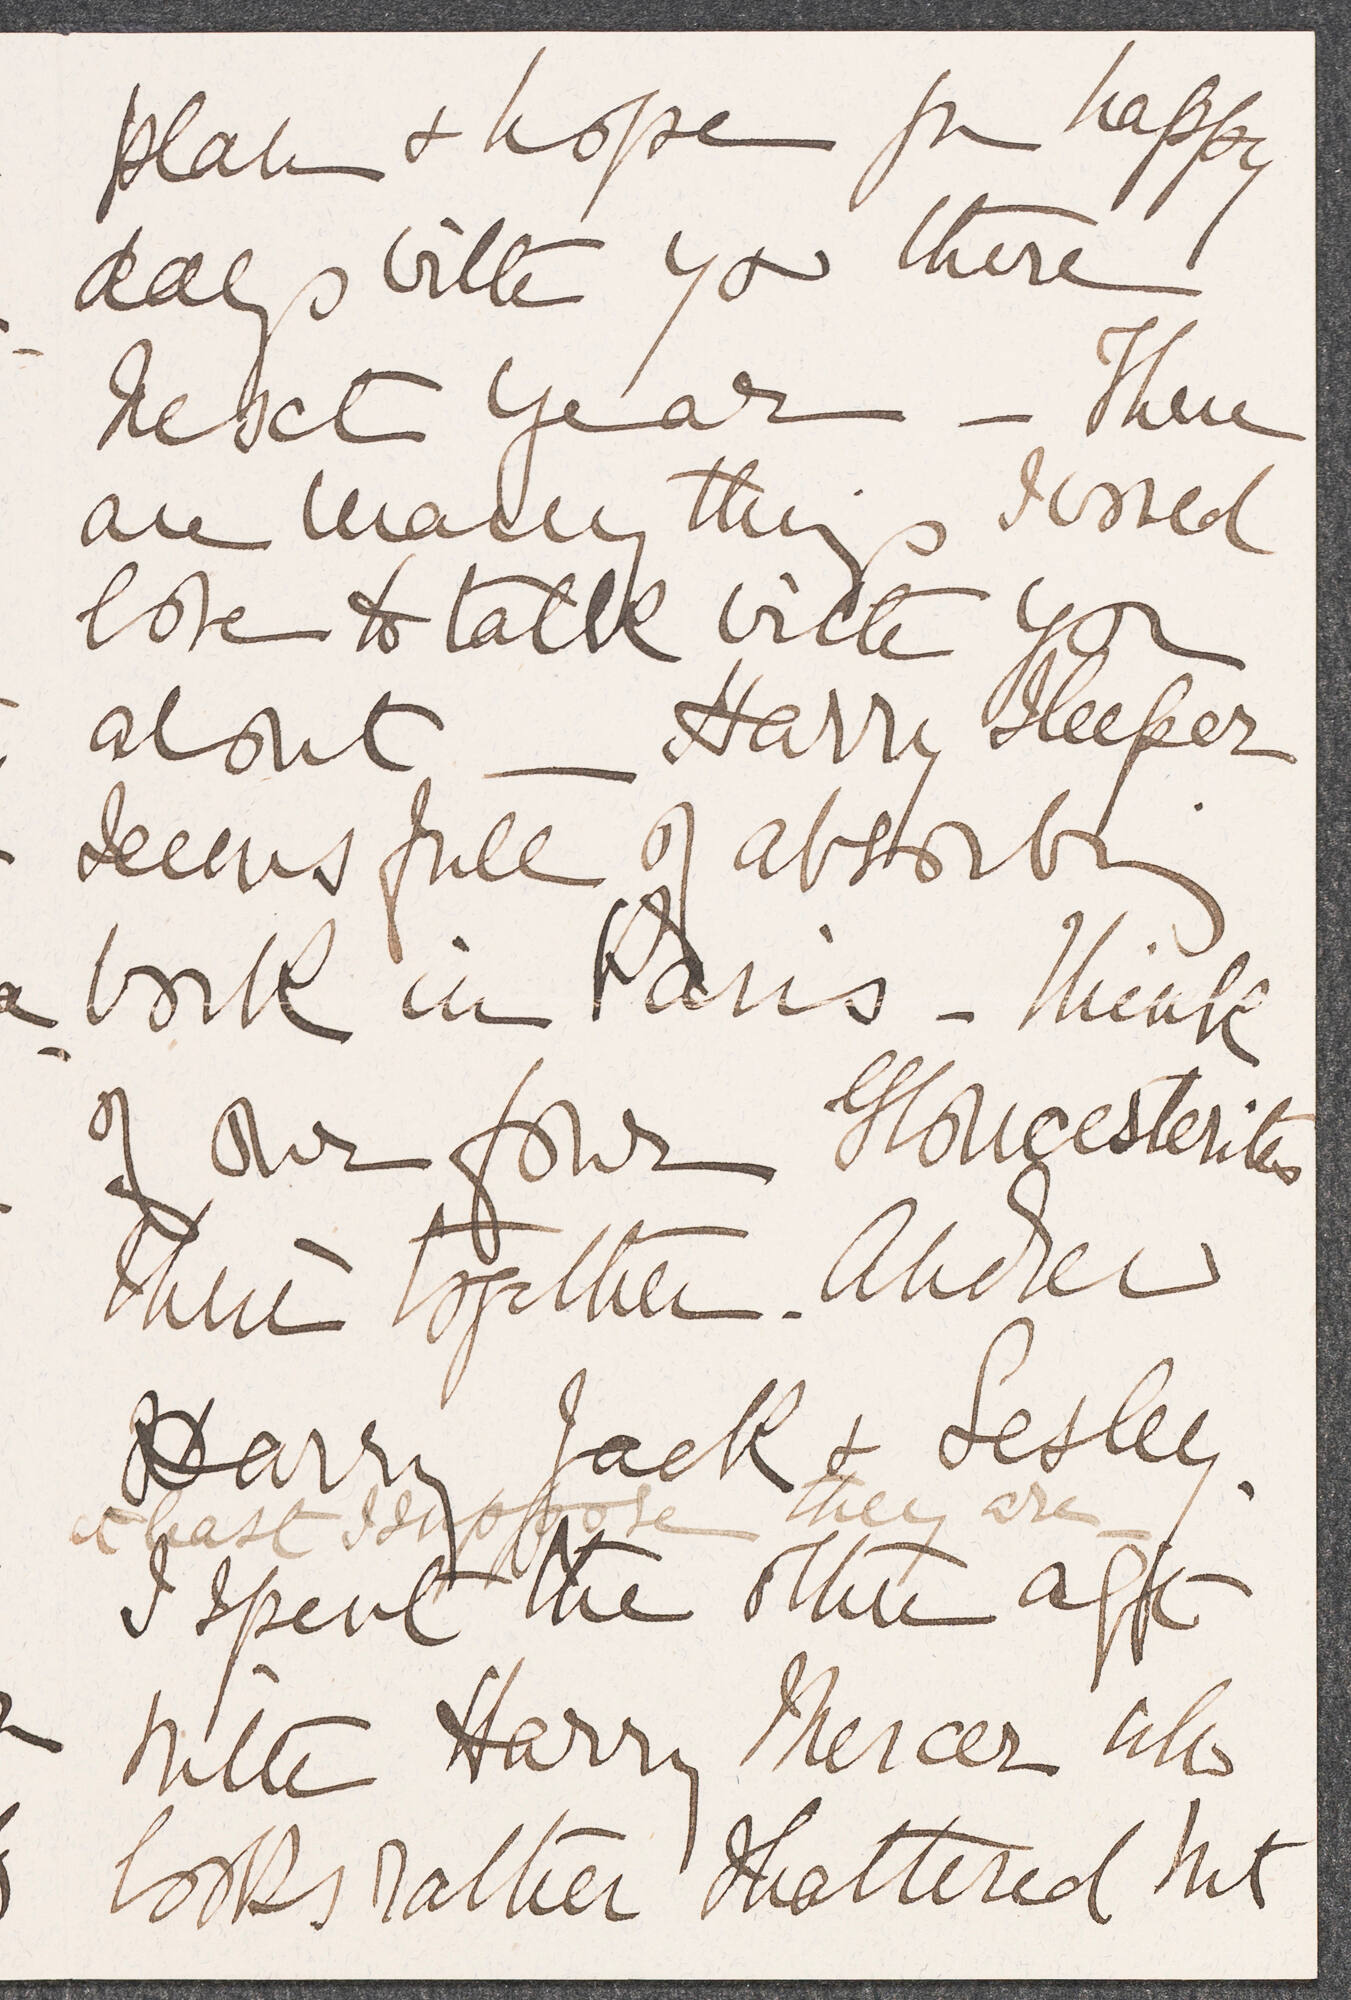 plan & hope for happy
days with you there
next year – There
are many things I would
love to talk with you
about – Harry Sleeper
seems full of absorbing
work in Paris – Think
of our four Gloucesterites
there together. Andrew
Harry Jack & Lesley.
at least I suppose they are –
I spent the other aft
with Harry Mercer who
looks rather shattered but